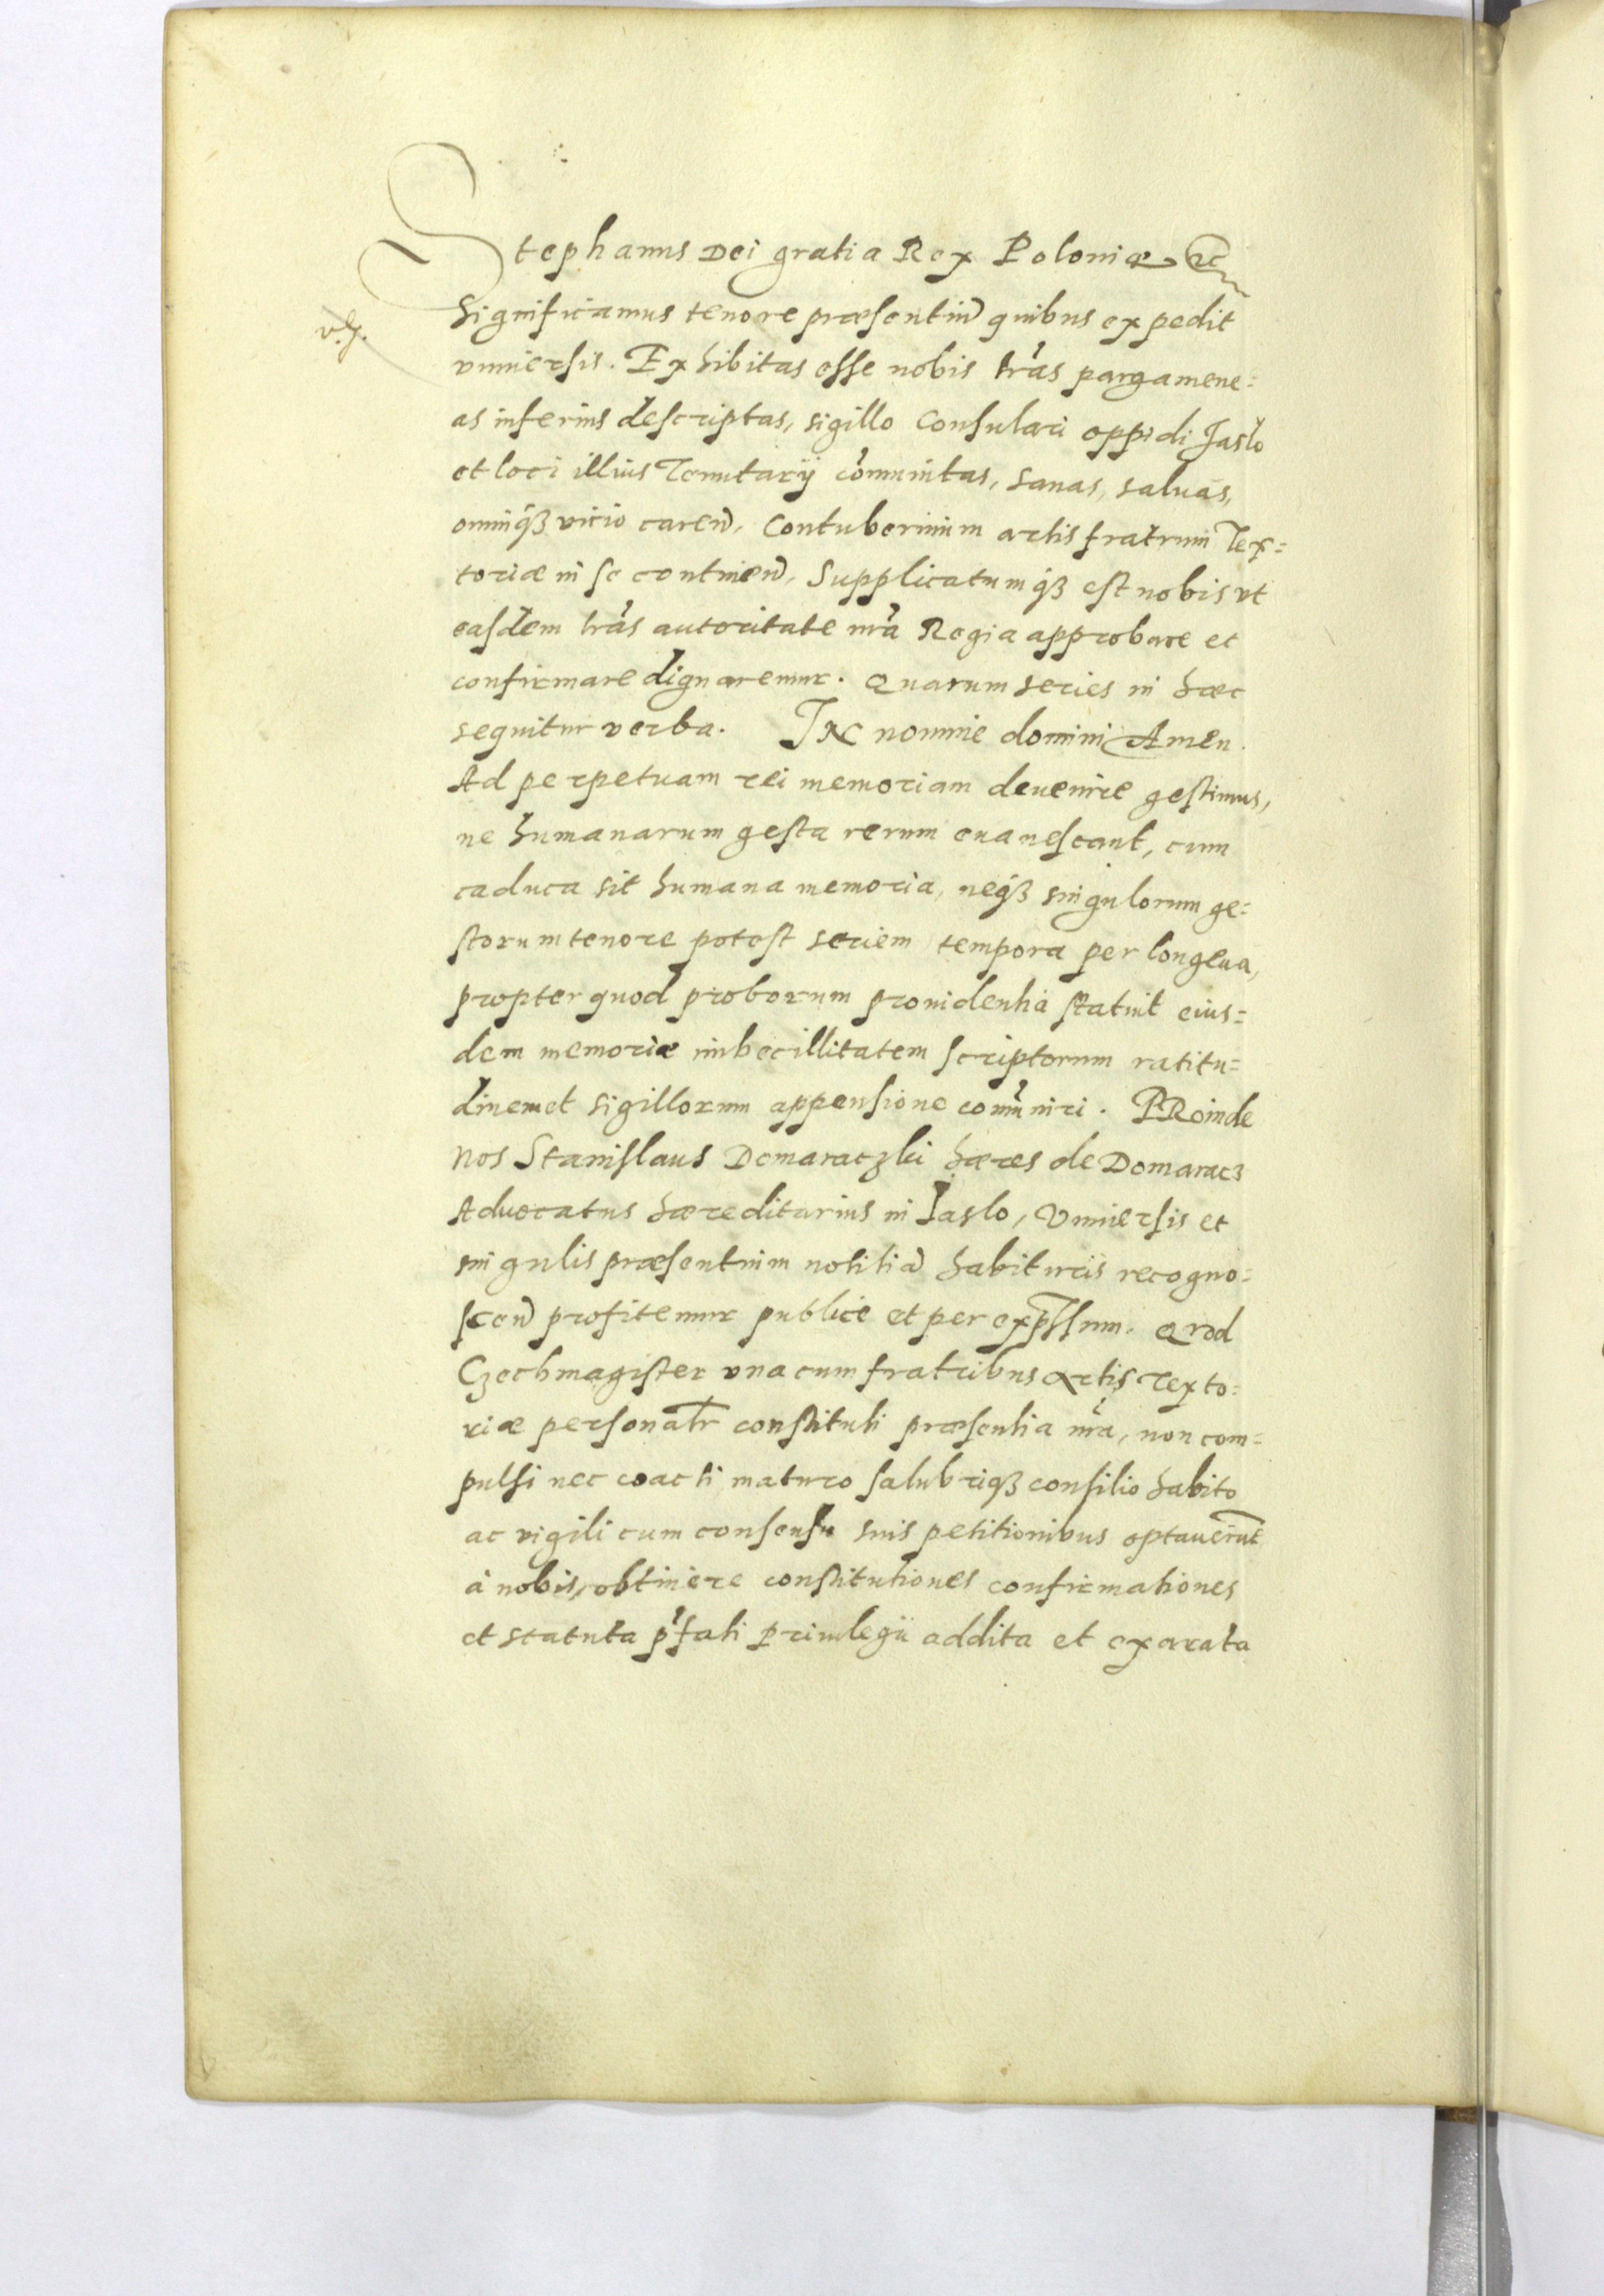 Stephanus Dei gratia Rex Poloniæ etc
Significamus tenore præsentiũ quibus expedit
vniuersis. Exhibitas esse nobis lr̃as pargamene=
as inferius descriptas, sigillo Consulari oppidi Jaslo
et loci illius Tenutarij com̃unitas, sanas, saluas,
omniq3 vicio careñ, Contubernium artis fratrum Tex=
toriæ in se continen̄, Supplicatumq3 est nobis vt
easdem lr̃as autoritate nr̃a Regia approbare et
confirmare dignaremur. Quarum series in hæc
sequitur verba. IN nomine domini Amen.
Ad perpetuam rei memoriam deuenire gestimus,
ne humanarum gesta rerum euanescant, cum
caduca sit humana memoria, neq3 singulorum ge=
storum tenore potest seriem tempora per longeua,
propter quod proborum prouidentia statuit eius=
dem memoriæ imbecillitatem scriptorum ratitu=
dinem et sigillorum appensione com̃uniri. PRoinde
Nos Stanislaus Domaraczki hæres de Domaracz
Aduocatus hæreditarius in Jaslo, Vniuersis et
singulis præsentium notitiã habituris recogno=
scen̄ profitemur publice et per exp̃ssum. Quod
Czechmagister vna cum fratribus Artis Texto=
riæ personalr̃ constituti præsentia nr̃a, non com=
pulsi nec coacti maturo salubriq3 consilio habito
ac vigili cum consensu suis petitionibus optauerũt
à nobis, obtinere constitutiones confirmationes
et statuta p̃fati priuilegii addita et exarata